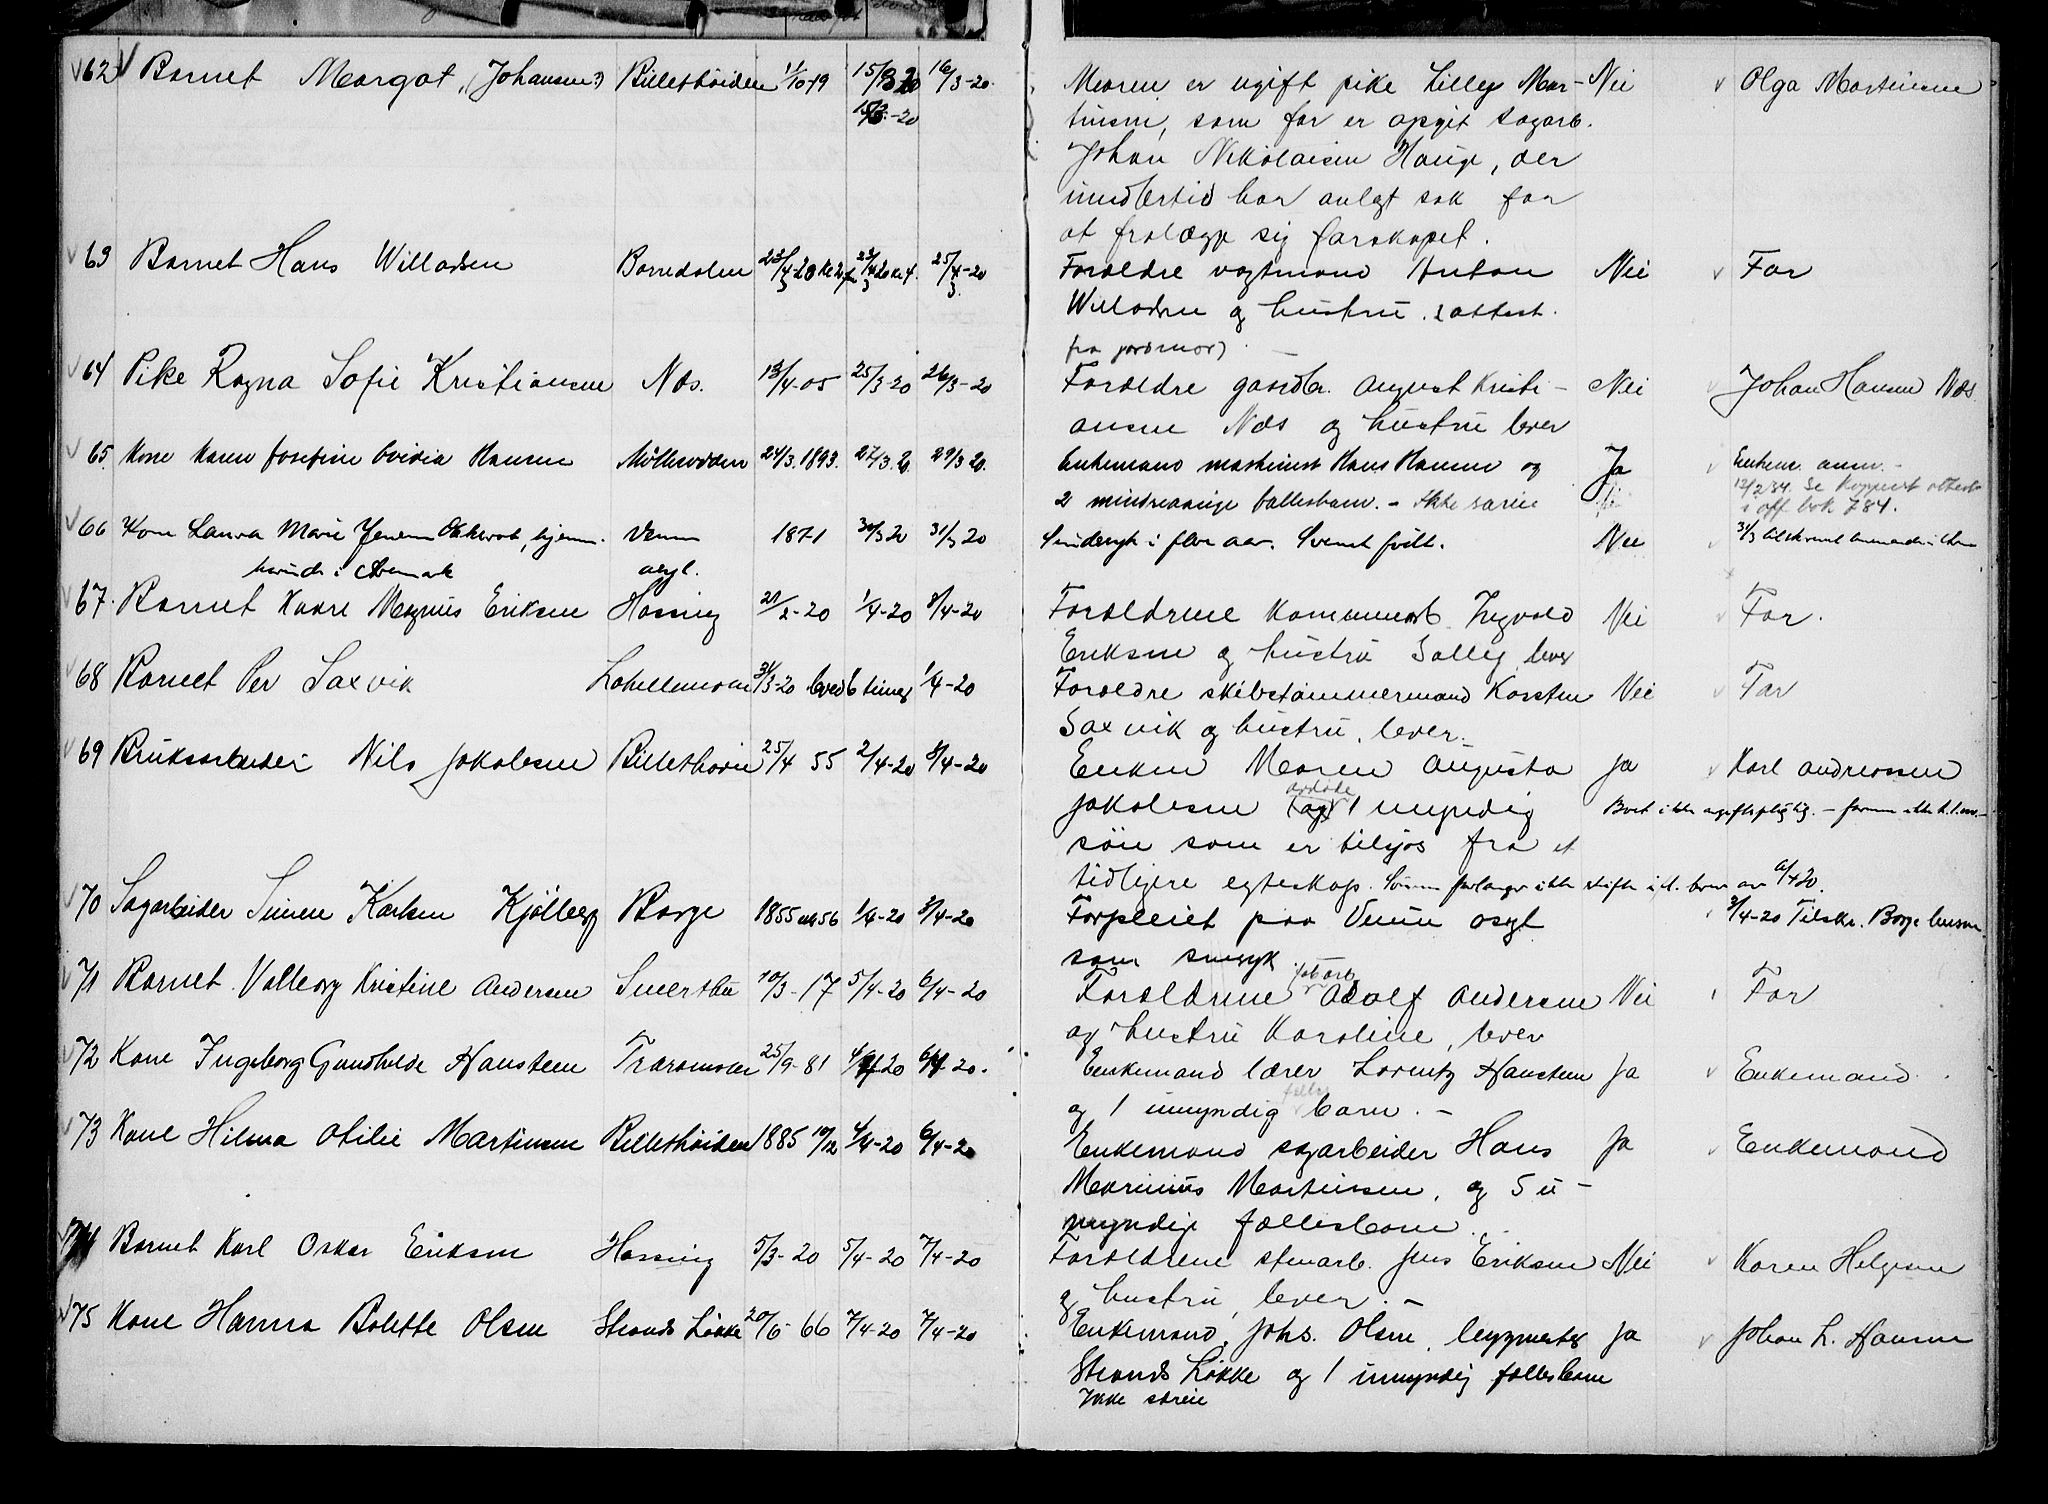 62 Barnet Margot, (Johansen?) Billethöiden 1/10 19 15/3 20 16/3-20. Moren er ugift pike Lilly Mar- Nei Olga Martinsen
15/3-20 tinsen, som far er opgit sagarb.
Johan Nikolaisen Hauge, der
imidlertid har anlagt sak for
at fralægge sig farskapet.
63 Barnet Hans Willadsen Borredalen 25/4-20 Foreldre vagtmand Anton Nei Far
Willadsen og hustru. (attest.
fra jordmor)
64 Pike Ragna Sofie Kristiansen Næs. 13/4-05 25/3-20 26/3-20 Foreldre gaardbr. August Kristi- Nei Johan Hansen Næs.
ansen Næs og hustru lever
65 Kone Karen Josefine Ovidia Hansen 24/3.1893. 27/3.20 29/3 20. Enkemand maskinist Hans Hansen og Ja Enkem. anm.-
2 mindreaarige fællesbarn. - Ikke særeie 12/2/34. Se attest
i aff bok 784.
66 Kone Laura Marie Jensen hjem- Venn 1871 30/3 20 31/3 20 Sindssyk i flere aar. Nei
hørende i Aremark asyl.
67. Barnet Kaare Magnus Eriksen Hassing 21/2-20 1/4-20 8/4-20 Foreldrene kommunearb. Ingvald Nei Far.
Eriksen og hustru Solley lever
68 Barnet Per Saxvik Lahellemoen 31/3-20 leved 6 timer 1/4-20 Foreldre skibstømmermand Karsten Nei Far
Saxvik og hustru, lever.
69 Bruksarbeider Nils Jakobsen Billethöiden 25/4 55 2/4-20 8/4-20 Enken Maren Augusta Ja Karl Andreassen
avdøde
Jakobsen (og) 1 myndig Boet ikke avgiftspligtig.
søn som er tilsjøs fra et
tidligere egteskap. Sønnen forlanger ikke skifte
70 Sagarbeider Simen Karlsen Kjölberg Borge 1855 56 1/4-20 8/4-20 Forpleiet paa Venn asyl 8/4-20 Tilskr. Borge
som sinssyk
71 Barnet Valborg Kristine Andersen Smertbu 10/3-17 5/4-20 6/4-20 Foreldrene fab arb Adolf Andersen Nei Far
og hustru Karoline, lever
72 Kone Ingeborg Gundhilde Hansteen Traramoen 25/9-81 4/4 20 6/4-20. Enkemand lærer Lorentz Hansteen Ja Enkemand.
og 1 umyndig fælles barn.-
73 Kone Hilma Otilie Martinsen Billethöiden 1885 10/12 4/4-20 6/4-20 Enkemand sagarbeider Hans Ja Enkemand
Marinius Martinsen, og 5 u-
myndige fællesbarn.
74 Barnet Karl Oskar Eriksen Hassing 5/3-20 5/4-20 7/4-20 Foreldrene stenarb. Jens Eriksen Nei Karen Helgesen
og hustru, lever.-
75 Kone Hanna Bolette Olsen Strands Løkke 20/6-66 7/4-20 7/4-20 Enkemand, Johs. Olsen, byggmester Ja Johan L. Hansen
Strands Løkke og 1 umyndig fællesbarn
Ikke særeie